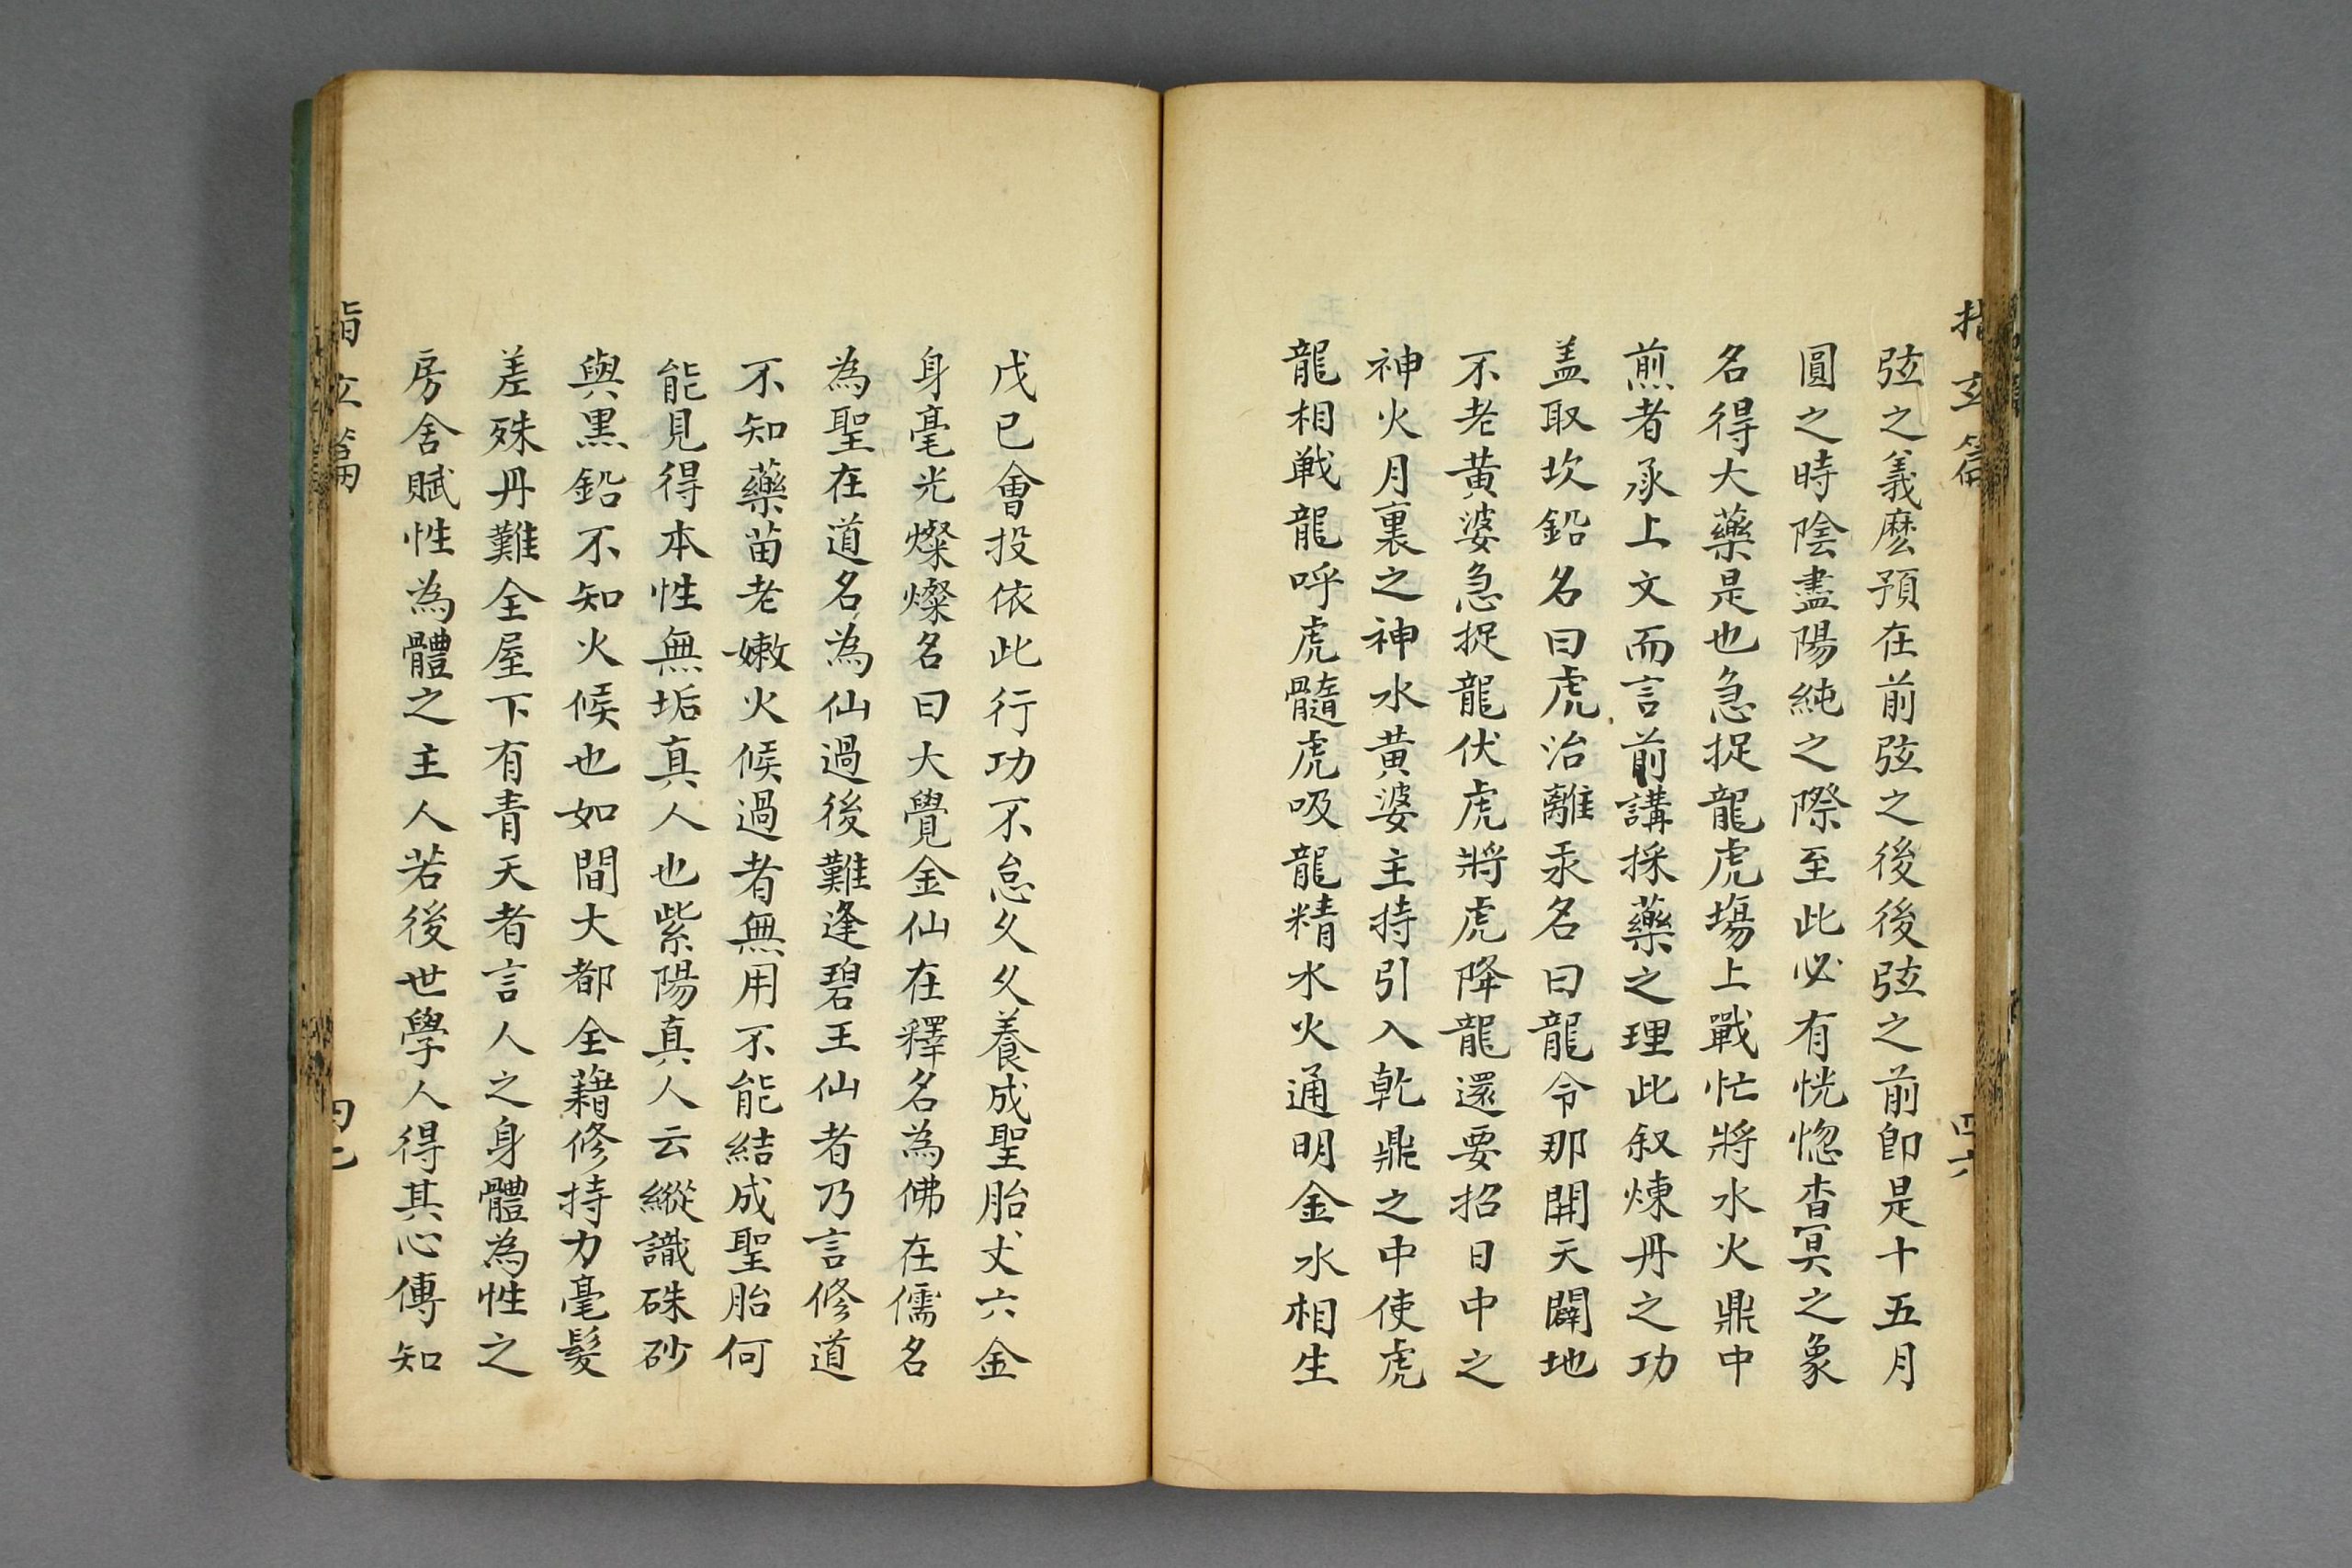 指玄篇
四六
弦之義麽預在前弦之後後弦之前即是十五月
圓之時陰盡陽純之際至此必有恍惚杳冥之象
名得大藥是也急捉龍虎塲上戰忙將水火鼎中
煎者承上文而言前講採藥之理此叙煉丹之功
盖取坎鉛名曰虎冶離汞名曰龍令那開天闢地
不老黄婆急捉龍伏虎將虎降龍還要招日中之
神火月裏之神水黄婆主持引入乾鼎之中使虎
龍相戦龍呼虎髓虎吸龍精水火通明金水相生
戊已會投依此行功不怠久久養成聖胎丈六金
身毫光燦燦名曰大覺金仙在釋名為佛在儒名
為聖在道名為仙過後難逢碧玉仙者乃言修道
不知藥苗老嫩火候過者無用不能結成聖胎何
能見得本性無垢真人也紫陽真人云縱識硃砂
與黒鉛不知火候也如間大都全藉修持力毫髮
差殊丹難全屋下有青天者言人之身體為性之
房舍賦性為體之主人若後世學人得其心傳知
指玄篇